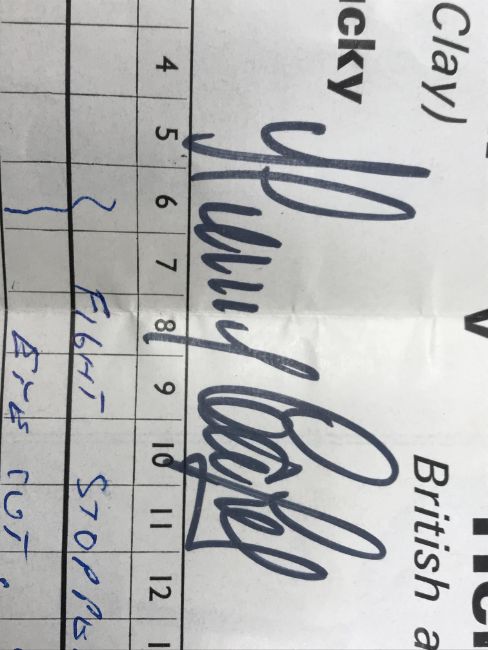 v
Clay) British a
cky
Henry Cooper
4 5 6 7 8 9 10 11 12
FIGHT STOPPE
EYES CUT.